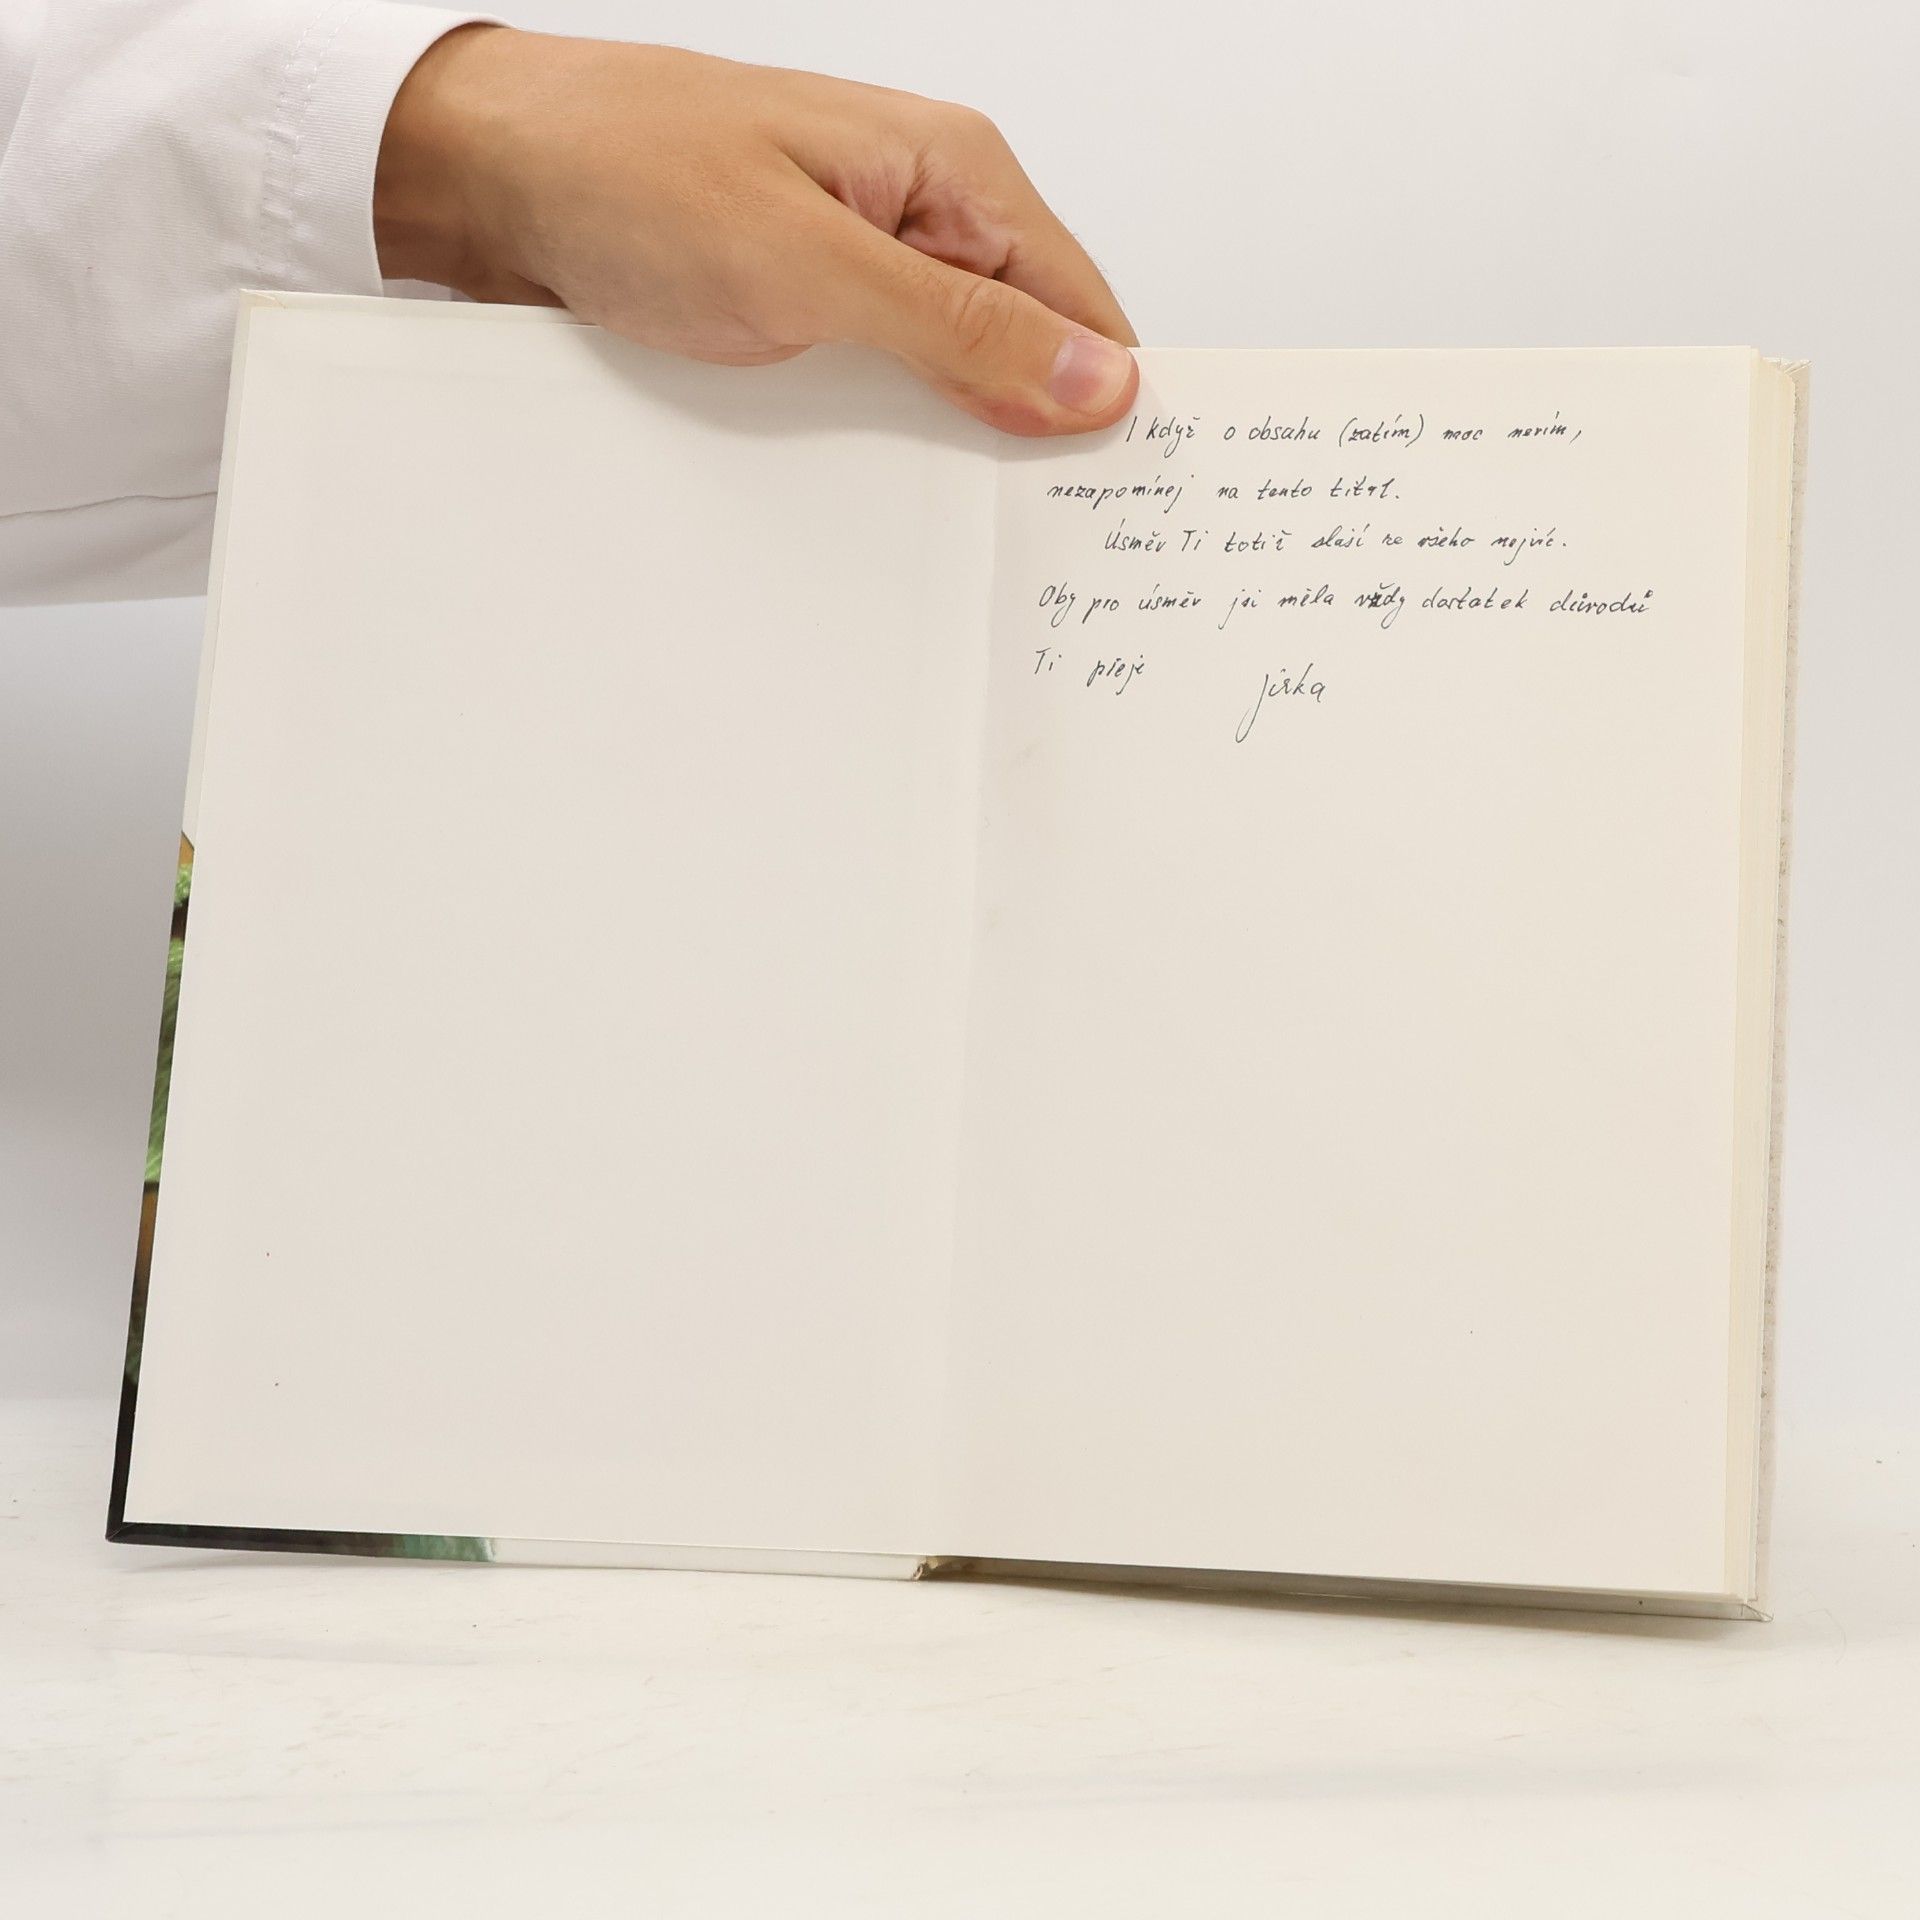 I když o obsahu (zatím) moc nevím,
nezapomínej na tento titul.
Úsměv Ti totiž sluší ze všeho nejvíc.
Aby pro úsměv jsi měla vždy dostatek důvodů
Ti přeje Jirka